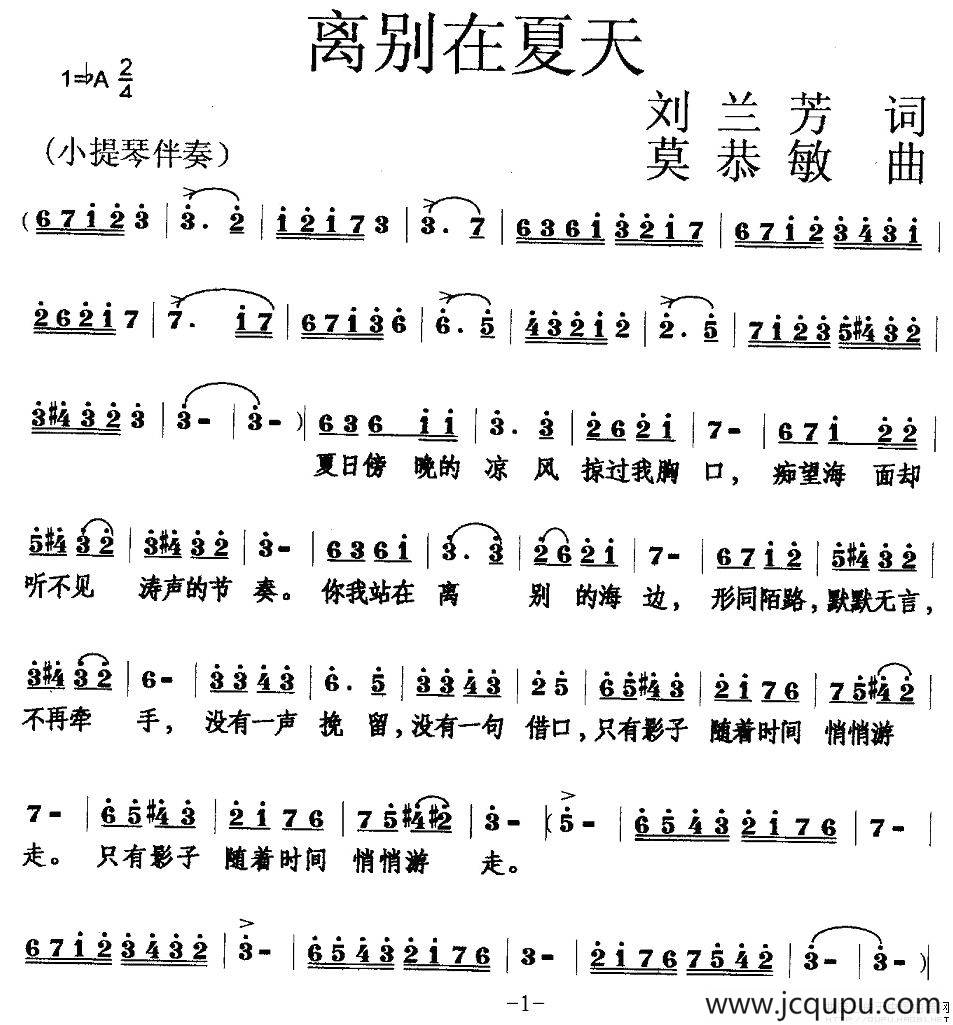 离别在夏天
1=♭A 2/4
刘兰芳 词
莫恭敏 曲
(小提琴伴奏)
(6 7 1̇ 2̇ 3̇ | 3̇. 2̇ | 1̇ 2̇ 1̇ 7 3 | 3̇. 7 | 6 3 6 1̇ 3̇ 2̇ 1̇ 7 | 6 7 1̇ 2̇ 3̇ 4̇ 3̇ 1̇ |
2̇ 6 2̇ 1̇ 7 | 7. 1̇ 7 | 6 7 1̇ 3̇ 6̇ | 6̇. 5̇ | 4̇ 3̇ 2̇ 1̇ 2̇ | 2̇. 5̇ | 7 1̇ 2̇ 3̇ 5̇ #4̇ 3̇ 2̇ |
3̇ #4̇ 3̇ 2̇ 3̇ | 3̇ - | 3̇ - ) | 6 3 6 1̇ 1̇ | 3̇. 3̇ | 2̇ 6 2̇ 1̇ | 7 - | 6 7 1̇ 2̇ 2̇ |
夏日傍 晚的 凉 风 掠过我胸 口, 痴望海 面却
5̇ #4̇ 3̇ 2̇ | 3̇ #4̇ 3̇ 2̇ | 3̇ - | 6 3 6 1̇ | 3̇. 3̇ | 2̇ 6 2̇ 1̇ | 7 - | 6 7 1̇ 2̇ | 5̇ #4̇ 3̇ 2̇ |
听不见 涛声的节 奏。 你我站在 离 别 的海 边, 形同陌路, 默默无言,
3̇ #4̇ 3̇ 2̇ | 6 - | 3̇ 3̇ 4̇ 3̇ | 6̇. 5̇ | 3̇ 3̇ 4̇ 3̇ | 2̇ 5̇ | 6̇ 5̇ #4̇ 3̇ | 2̇ 1̇ 7 6 | 7 5̇ #4̇ 2̇ |
不再牵 手, 没有一声 挽 留, 没有一句 借口, 只有影子 随着时间 悄悄游
7 - | 6̇ 5̇ #4̇ 3̇ | 2̇ 1̇ 7 6 | 7 5̇ #4̇ #2̇ | 3̇ - | (5̇ - | 6̇ 5̇ 4̇ 3̇ 2̇ 1̇ 7 6 | 7 - |
走。 只有影子 随着时间 悄悄游 走。
6 7 1̇ 2̇ 3̇ 4̇ 3̇ 2̇ | 3̇ - | 6̇ 5̇ 4̇ 3̇ 2̇ 1̇ 7 6 | 3 - | 2̇ 1̇ 7 6 7 5̇ 4̇ 2̇ | 3̇ - | 3̇ - )|
-1-
www.jcqupu.com